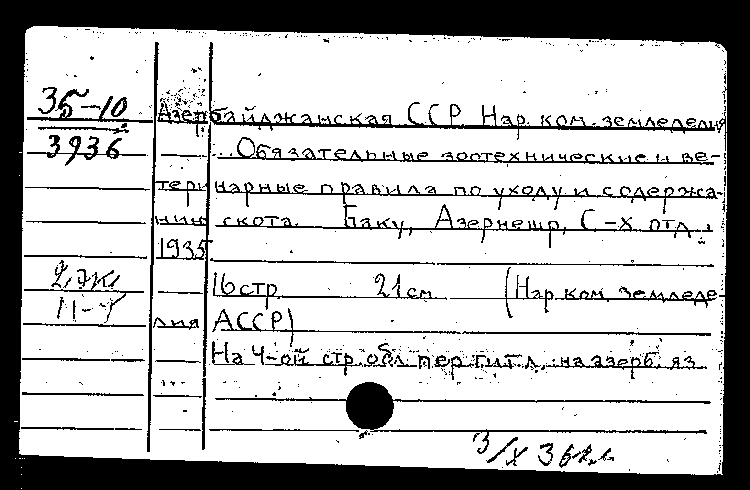 35-10
3936
Азербайджанская ССР Нар. ком. земледелия
Обязательные зоотехнические и ве-
теринарные правила по уходу и содержа-
нию скота. Баку, Азернешр, С-х отд.,
1935
16 стр 21 см (Нар. ком. земледе-
лия АССР)
На 4-ой стр. обл. пер. титл. на азерб. яз.
2 эк
3/X 36